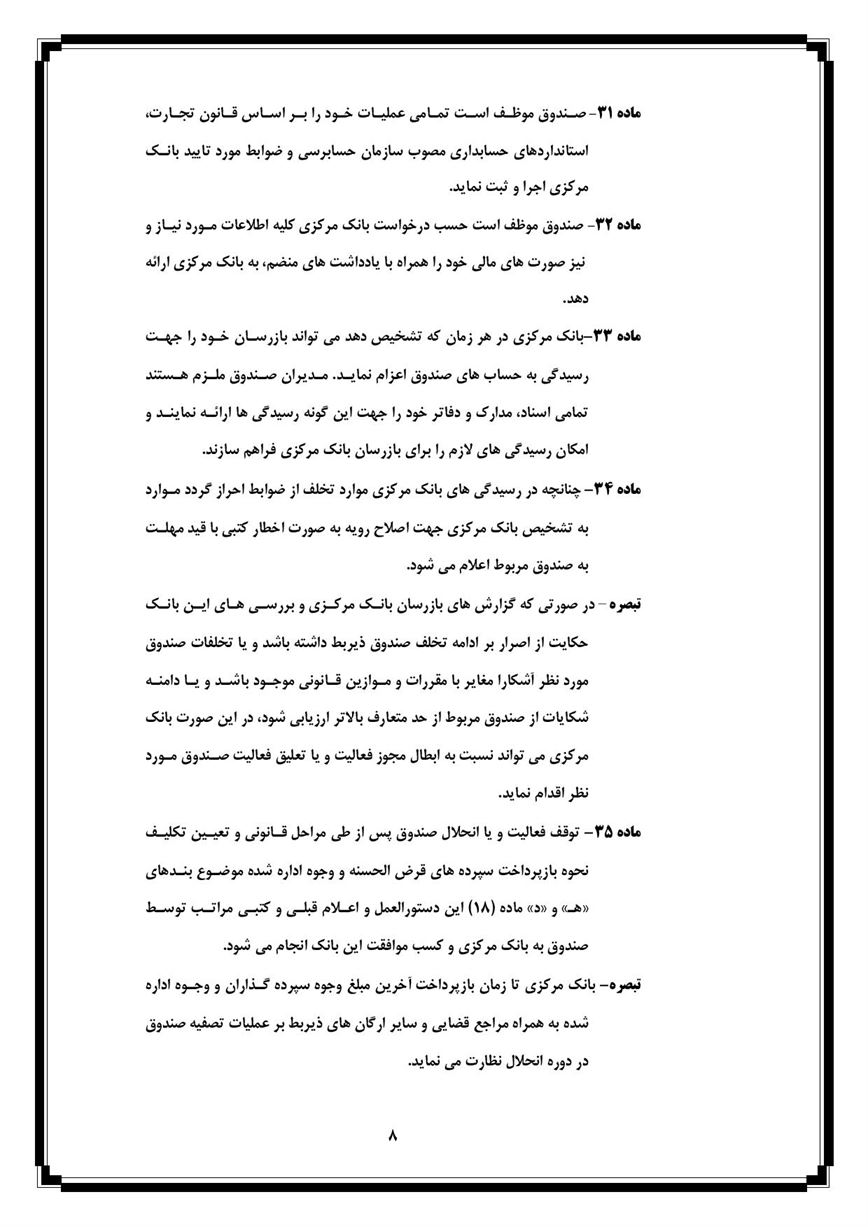 ماده ۳۱- صندوق موظف است تمامی عملیات خود را بر اساس قانون تجارت،
استانداردهای حسابداری مصوب سازمان حسابرسی و ضوابط مورد تایید بانک
مرکزی اجرا و ثبت نماید.
ماده ۳۲- صندوق موظف است حسب درخواست بانک مرکزی کلیه اطلاعات مورد نیاز و
نیز صورت های مالی خود را همراه با یادداشت های منضم، به بانک مرکزی ارائه
دهد.
ماده ۳۳-بانک مرکزی در هر زمان که تشخیص دهد می تواند بازرسان خود را جهت
رسیدگی به حساب های صندوق اعزام نماید. مدیران صندوق ملزم هستند
تمامی اسناد، مدارک و دفاتر خود را جهت این گونه رسیدگی ها ارائه نمایند و
امکان رسیدگی های لازم را برای بازرسان بانک مرکزی فراهم سازند.
ماده ۳۴- چنانچه در رسیدگی های بانک مرکزی موارد تخلف از ضوابط احراز گردد موارد
به تشخیص بانک مرکزی جهت اصلاح رویه به صورت اخطار کتبی با قید مهلت
به صندوق مربوط اعلام می شود.
تبصره - در صورتی که گزارش های بازرسان بانک مرکزی و بررسی های این بانک
حکایت از اصرار بر ادامه تخلف صندوق ذیربط داشته باشد و یا تخلفات صندوق
مورد نظر آشکارا مغایر با مقررات و موازین قانونی موجود باشد و یا دامنه
شکایات از صندوق مربوط از حد متعارف بالاتر ارزیابی شود، در این صورت بانک
مرکزی می تواند نسبت به ابطال مجوز فعالیت و یا تعلیق فعالیت صندوق مورد
نظر اقدام نماید.
ماده ۳۵- توقف فعالیت و یا انحلال صندوق پس از طی مراحل قانونی و تعیین تکلیف
نحوه بازپرداخت سپرده های قرض الحسنه و وجوه اداره شده موضوع بندهای
«هـ» و «د» ماده (۱۸) این دستورالعمل و اعلام قبلی و کتبی مراتب توسط
صندوق به بانک مرکزی و کسب موافقت این بانک انجام می شود.
تبصره- بانک مرکزی تا زمان بازپرداخت آخرین مبلغ وجوه سپرده گذاران و وجوه اداره
شده به همراه مراجع قضایی و سایر ارگان های ذیربط بر عملیات تصفیه صندوق
در دوره انحلال نظارت می نماید.
۸